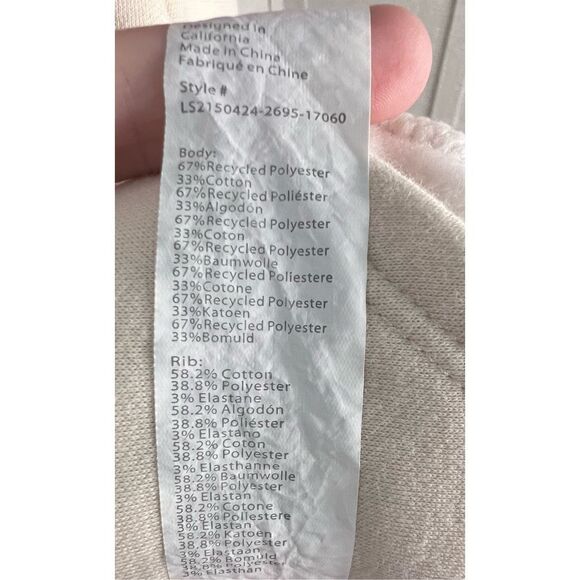 Designed in
California
Made in China
Fabriqué en Chine
Style #
LS2150424-2695-17060
Body:
67%Recycled Polyester
33%Cotton
67%Recycled Poliéster
33%Algodón
67%Recycled Polyester
33%Coton
67%Recycled Polyester
33%Baumwolle
67%Recycled Poliestere
33%Cotone
67%Recycled Polyester
33%Katoen
67%Recycled Polyester
33%Bomuld
Rib:
58.2% Cotton
38.8% Polyester
3% Elastane
58.2% Algodón
38.8% Poliéster
3% Elastano
58.2% Coton
38.8% Polyester
3% Elasthanne
58.2% Baumwolle
38.8% Polyester
3% Elastan
58.2% Cotone
38.8% Poliestere
3% Elastan
58.2% Katoen
38.8% Polyester
3% Elastaan
58.2% Bomuld
38.8% Polyester
3% Elasthan